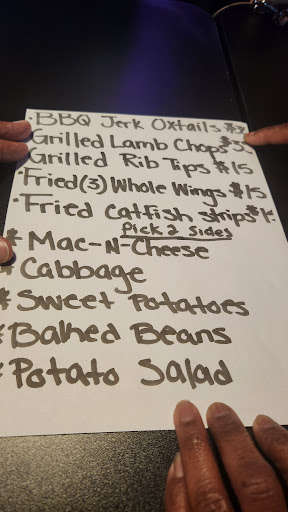 • BBQ Jerk Oxtails
Grilled Lamb Chops
Grilled Rib Tips $15
• Fried (3) Whole Wings $15
• Fried Catfish Strips
Pick 2 Sides
* Mac-N-Cheese
* Cabbage
* Sweet Potatoes
* Baked Beans
* Potato Salad